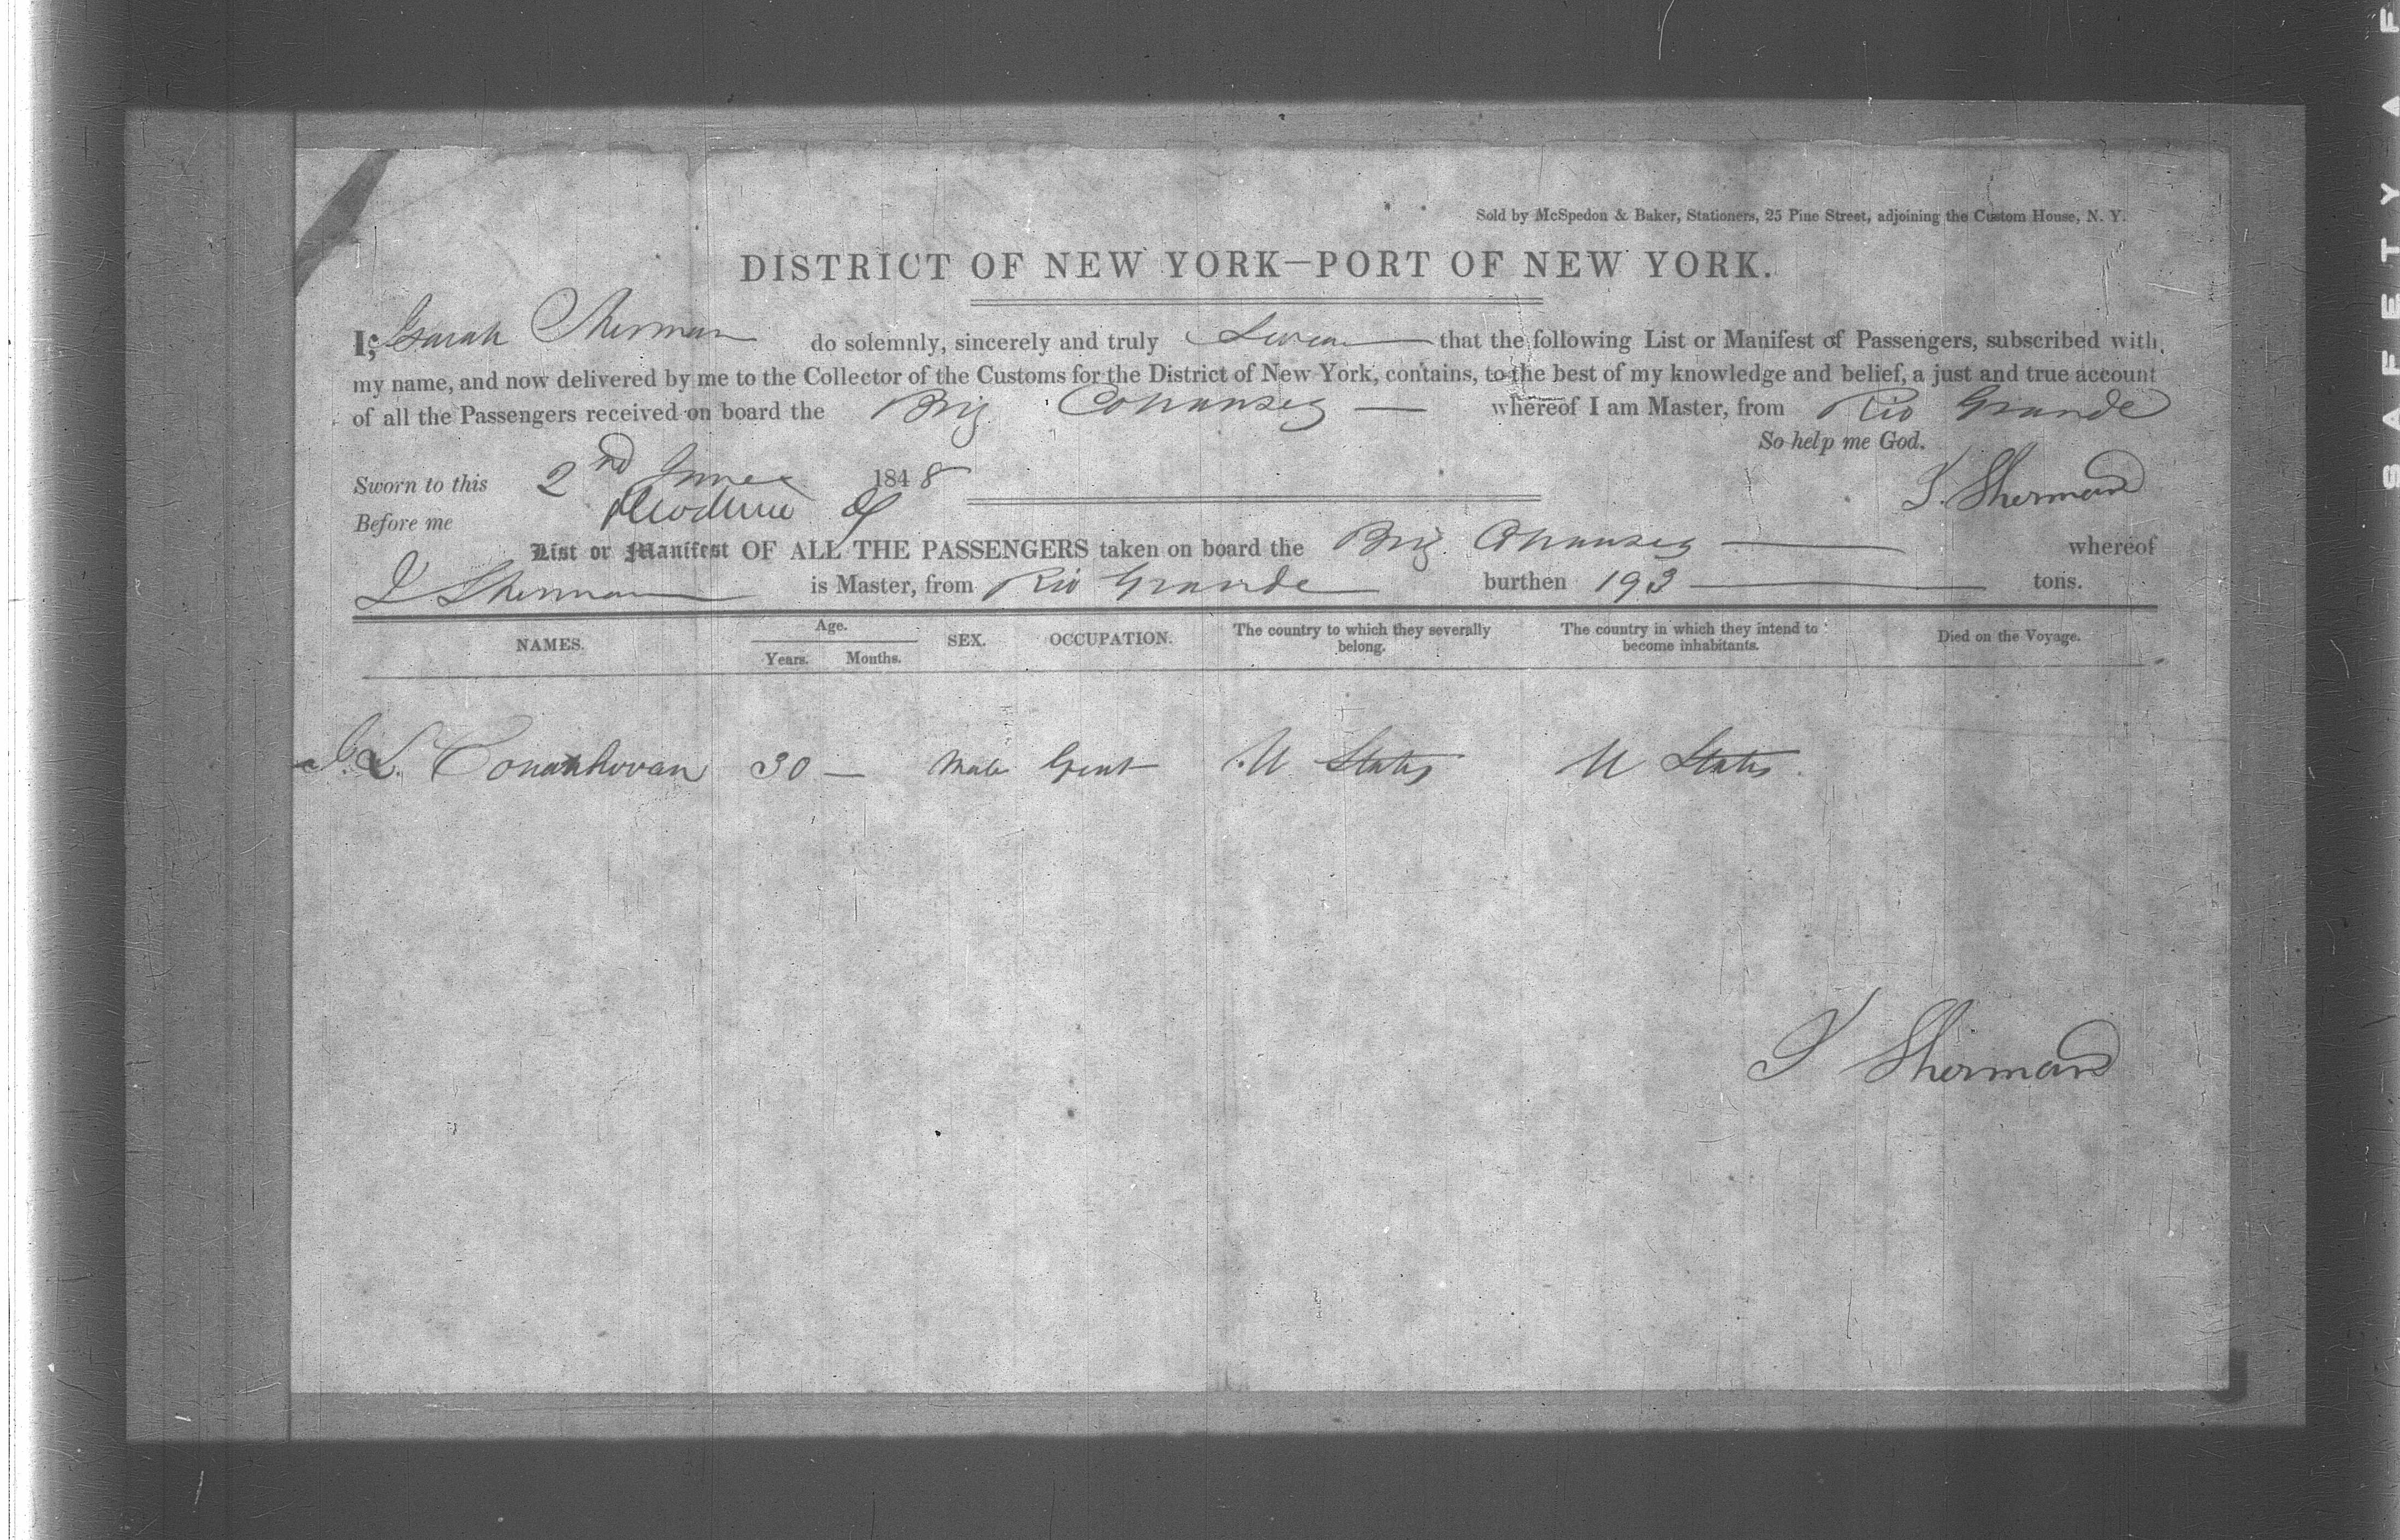 Sold by McSpedon & Baker, Stationers, 25 Pine Street, adjoining the Custom House, N. Y.
DISTRICT OF NEW YORK—PORT OF NEW YORK.
I, Sherman do solemnly, sincerely and truly Swear that the following List or Manifest of Passengers, subscribed with
my name, and now delivered by me to the Collector of the Customs for the District of New York, contains, to the best of my knowledge and belief, a just and true account
of all the Passengers received on board the Brig Cohansey whereof I am Master, from Rio Grande
So help me God.
Sworn to this 2nd June 1848 I. Sherman
Before me
List or Manifest OF ALL THE PASSENGERS taken on board the Brig Cohansey whereof
I Sherman is Master, from Rio Grande burthen 193 tons.
NAMES. Age. Years. Months. SEX. OCCUPATION. The country to which they severally belong. The country in which they intend to become inhabitants. Died on the Voyage.
L. 30 — Male Gent U States U States.
I Sherman
SAFETY